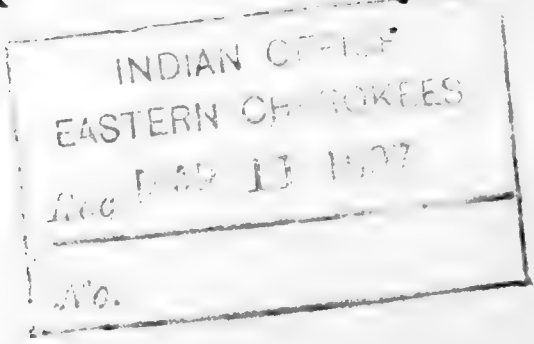 INDIAN OFFICE
EASTERN CHEROKEES
Rec MAR 13
No.